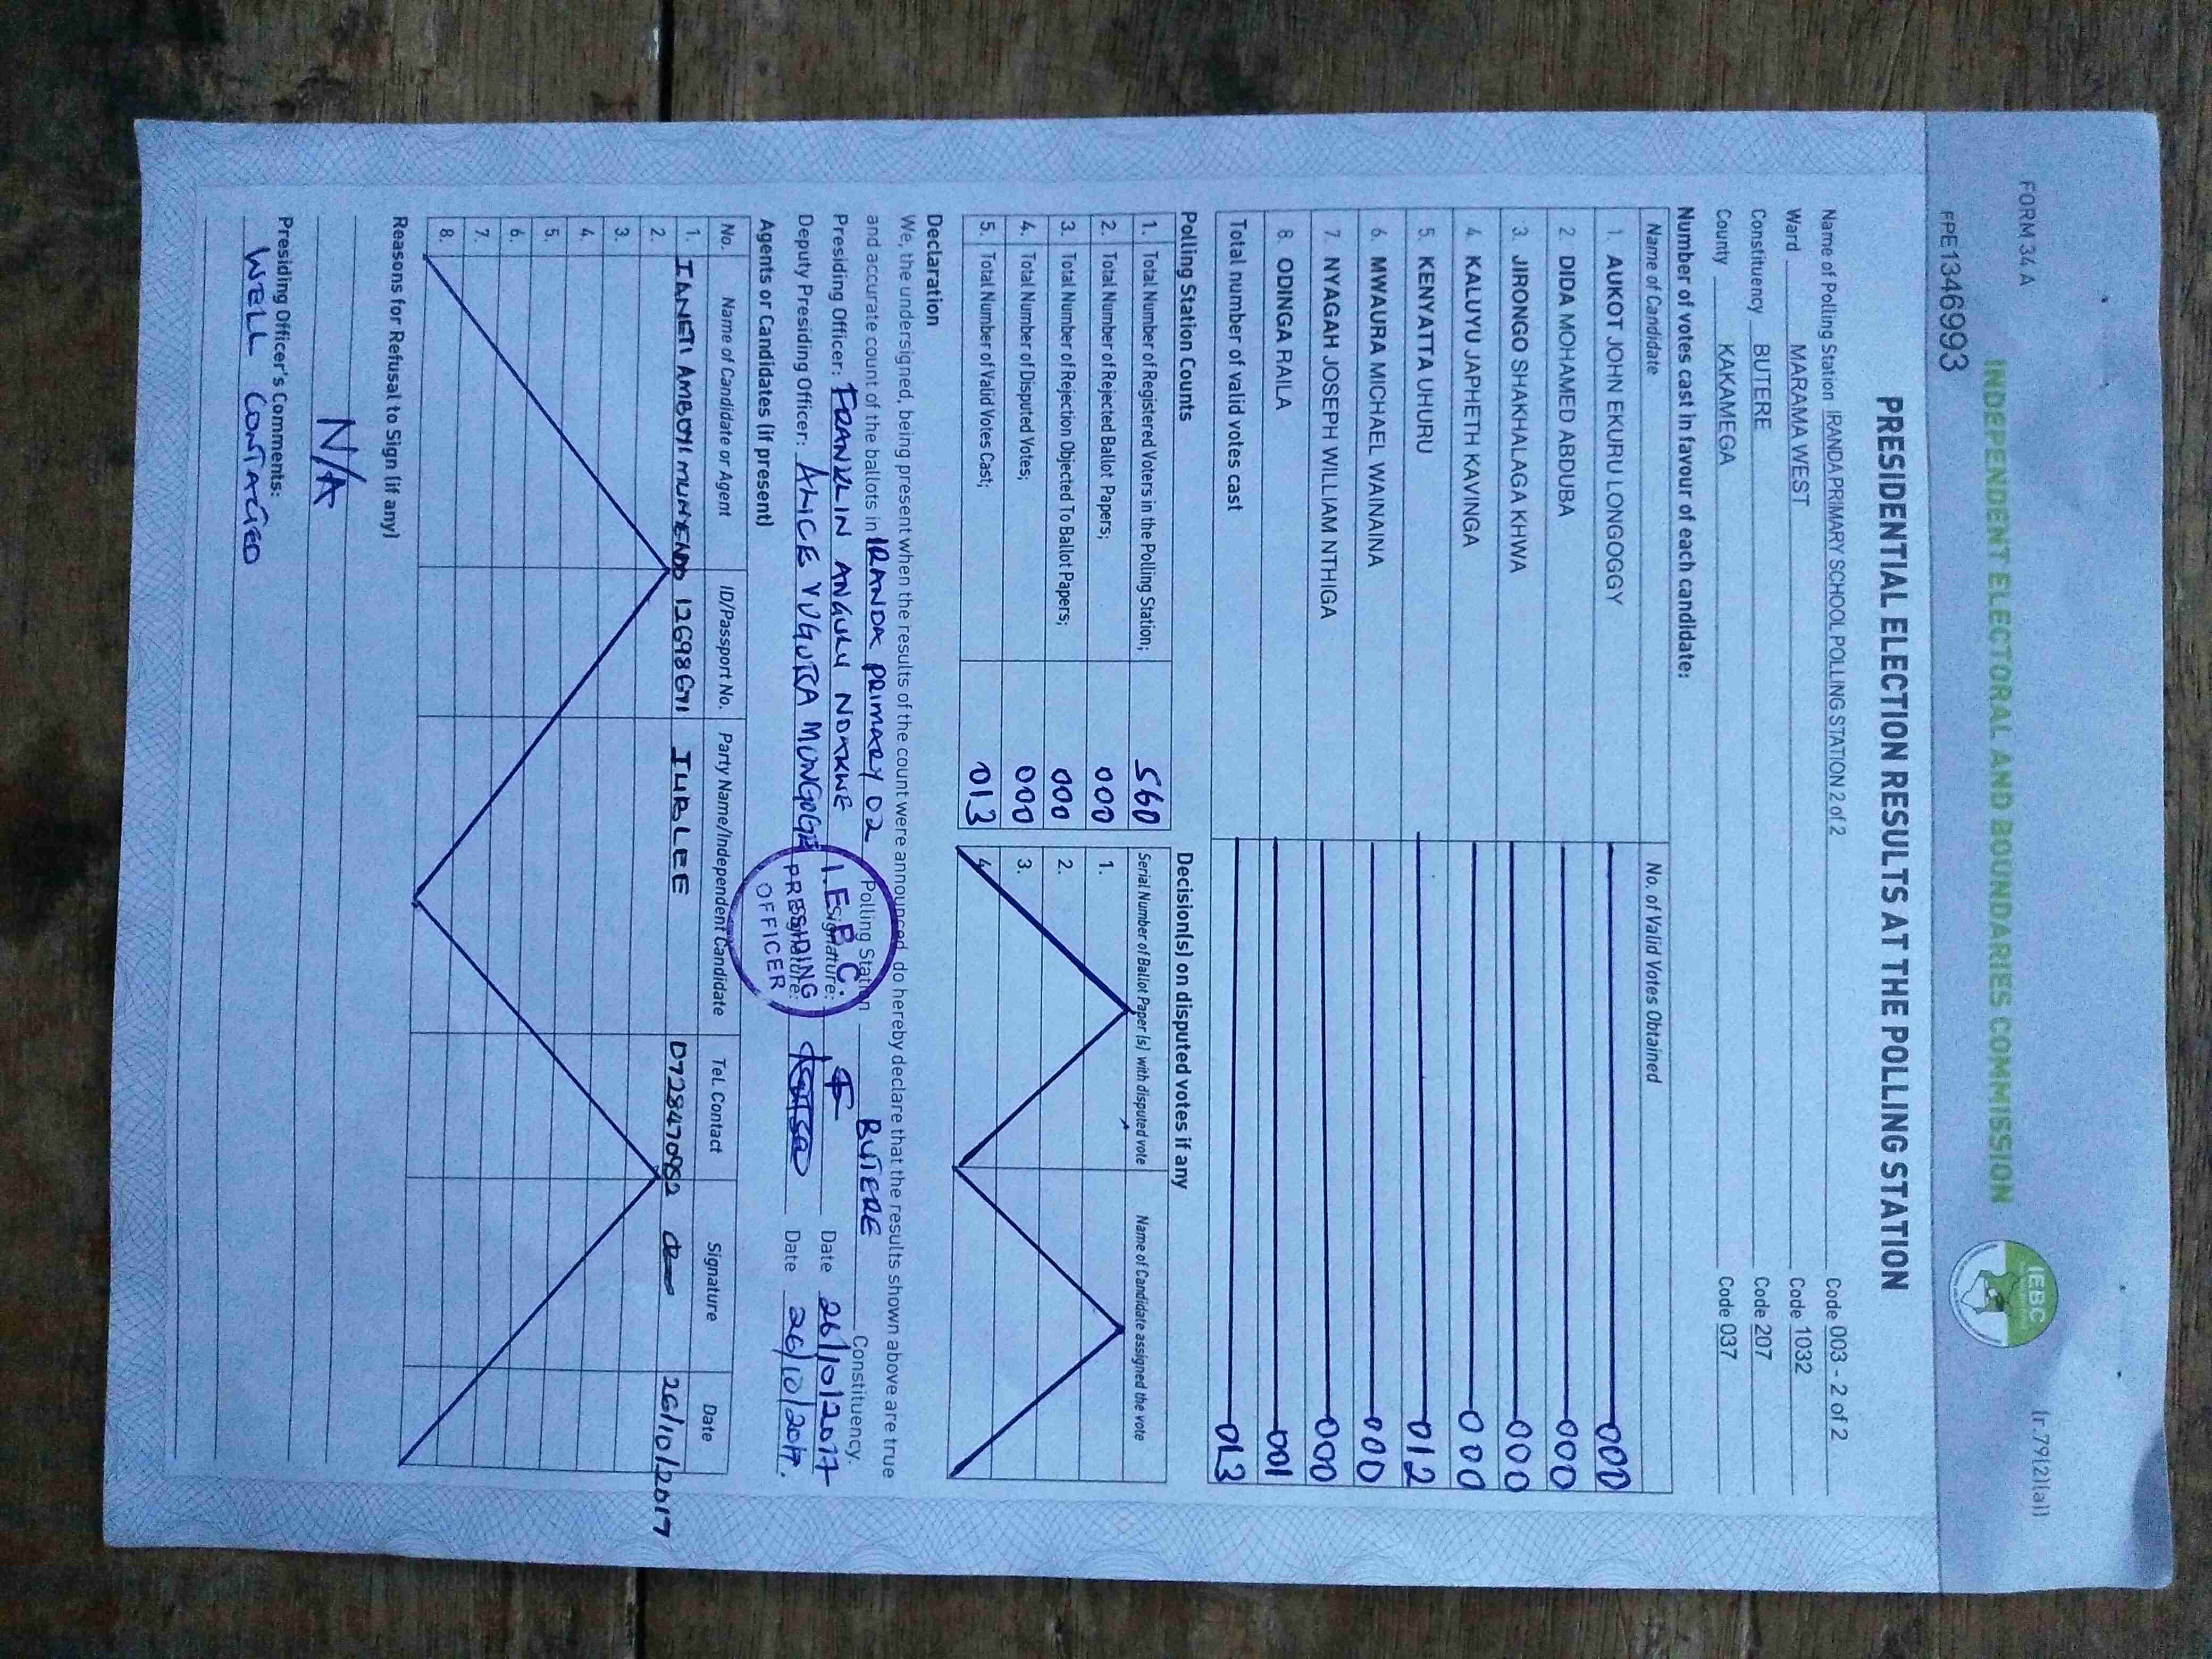 FORM 34 A
(r.79(2)(a))
INDEPENDENT ELECTORAL AND BOUNDARIES COMMISSION
IEBC
FPE1346993
PRESIDENTIAL ELECTION RESULTS AT THE POLLING STATION
Name of Polling Station IRANDA PRIMARY SCHOOL POLLING STATION 2 of 2 Code 003 - 2 of 2
Ward MARAMA WEST Code 1032
Constituency BUTERE Code 207
County KAKAMEGA Code 037
Number of votes cast in favour of each candidate:
Name of Candidate No. of Valid Votes Obtained
1. AUKOT JOHN EKURU LONGOGGY 000
2. DIDA MOHAMED ABDUBA 000
3. JIRONGO SHAKHALAGA KHWA 000
4. KALUYU JAPHETH KAVINGA 000
5. KENYATTA UHURU 012
6. MWAURA MICHAEL WAINAINA 000
7. NYAGAH JOSEPH WILLIAM NTHIGA 000
8. ODINGA RAILA 001
Total number of valid votes cast 013
Polling Station Counts
1. Total Number of Registered Voters in the Polling Station; 560
2. Total Number of Rejected Ballot Papers; 000
3. Total Number of Rejection Objected To Ballot Papers; 000
4. Total Number of Disputed Votes; 000
5. Total Number of Valid Votes Cast; 013
Decision(s) on disputed votes if any
Serial Number of Ballot Paper (s) with disputed vote Name of Candidate assigned the vote
1.
2.
3.
4.
Declaration
We, the undersigned, being present when the results of the count were announced, do hereby declare that the results shown above are true
and accurate count of the ballots in IRANDA PRIMARY 02 Polling Station BUTERE Constituency.
Presiding Officer: FRANKLIN ANGULU NDAKWE Signature: Date 26/10/2017
Deputy Presiding Officer: ALICE Signature: Date 26/10/2017.
I.E.B.C.
PRESIDING
OFFICER
Agents or Candidates (if present)
No. Name of Candidate or Agent ID/Passport No. Party Name/Independent Candidate Tel. Contact Signature Date
1. JUBLEE 26/10/2017
2.
3.
4.
5.
6.
7.
8.
Reasons for Refusal to Sign (if any)
N/A
Presiding Officer's Comments:
WELL